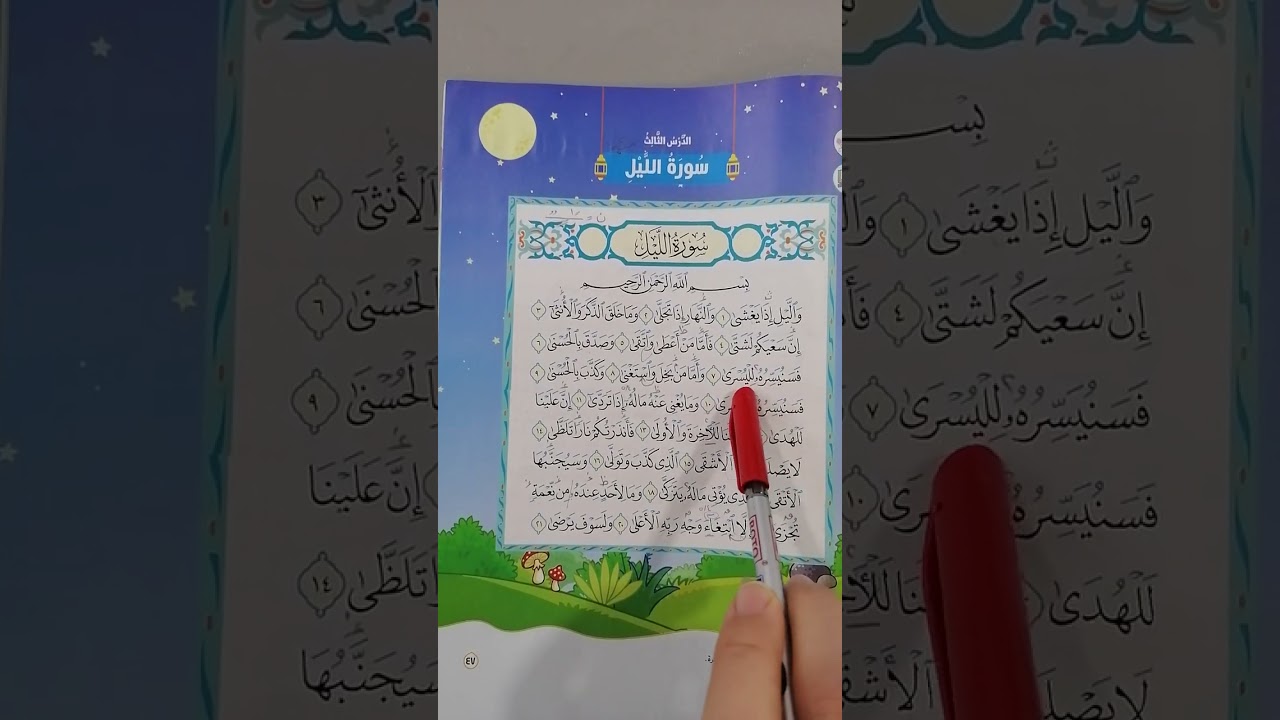 الدَّرْسُ الثَّالِثُ
سُورَةُ اللَّيْلِ
سُورَةُ اللَّيْلِ
بِسْمِ اللَّهِ الرَّحْمَٰنِ الرَّحِيمِ
وَٱلَّيۡلِ إِذَا يَغۡشَىٰ ١ وَٱلنَّهَارِ إِذَا تَجَلَّىٰ ٢ وَمَا خَلَقَ ٱلذَّكَرَ وَٱلۡأُنثَىٰٓ ٣
إِنَّ سَعۡيَكُمۡ لَشَتَّىٰ ٤ فَأَمَّا مَنۡ أَعۡطَىٰ وَٱتَّقَىٰ ٥ وَصَدَّقَ بِٱلۡحُسۡنَىٰ ٦
فَسَنُيَسِّرُهُۥ لِلۡيُسۡرَىٰ ٧ وَأَمَّا مَنۢ بَخِلَ وَٱسۡتَغۡنَىٰ ٨ وَكَذَّبَ بِٱلۡحُسۡنَىٰ ٩
فَسَنُيَسِّرُهُۥ ١٠ وَمَا يُغۡنِي عَنۡهُ مَالُهُۥٓ إِذَا تَرَدَّىٰٓ ١١ إِنَّ عَلَيۡنَا
لَلۡهُدَىٰ لَلۡأٓخِرَةَ وَٱلۡأُولَىٰ ١٣ فَأَنذَرۡتُكُمۡ نَارٗا تَلَظَّىٰ ١٤
لَا ٱلۡأَشۡقَى ١٥ ٱلَّذِي كَذَّبَ وَتَوَلَّىٰ ١٦ وَسَيُجَنَّبُهَا
ٱلۡأَتۡقَى يُؤۡتِي مَالَهُۥ يَتَزَكَّىٰ ١٨ وَمَا لِأَحَدٍ عِندَهُۥ مِن نِّعۡمَةٖ
تُجۡزَىٰٓ ٱبۡتِغَآءَ وَجۡهِ رَبِّهِ ٱلۡأَعۡلَىٰ ٢٠ وَلَسَوۡفَ يَرۡضَىٰ ٢١
٤٧